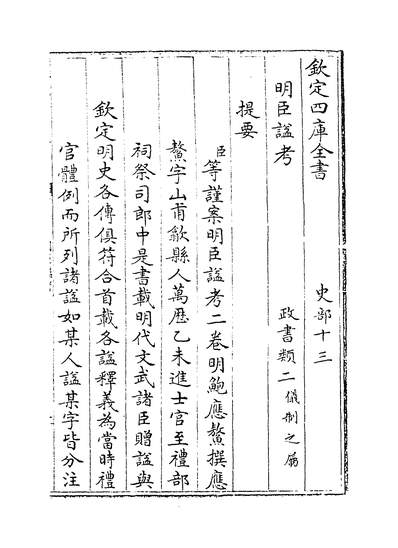 欽定四庫全書　史部十三
明臣謚考　政書類二儀制之屬
提要
臣等謹案明臣謚考二卷明鮑應鰲撰應
鰲字山甫歙縣人萬歴乙未進士官至禮部
祠祭司郎中是書載明代文武諸臣贈謚與
欽定明史各傳俱符合首載各謚釋義為當時禮
官體例而所列諸謚如某人謚某字皆分注